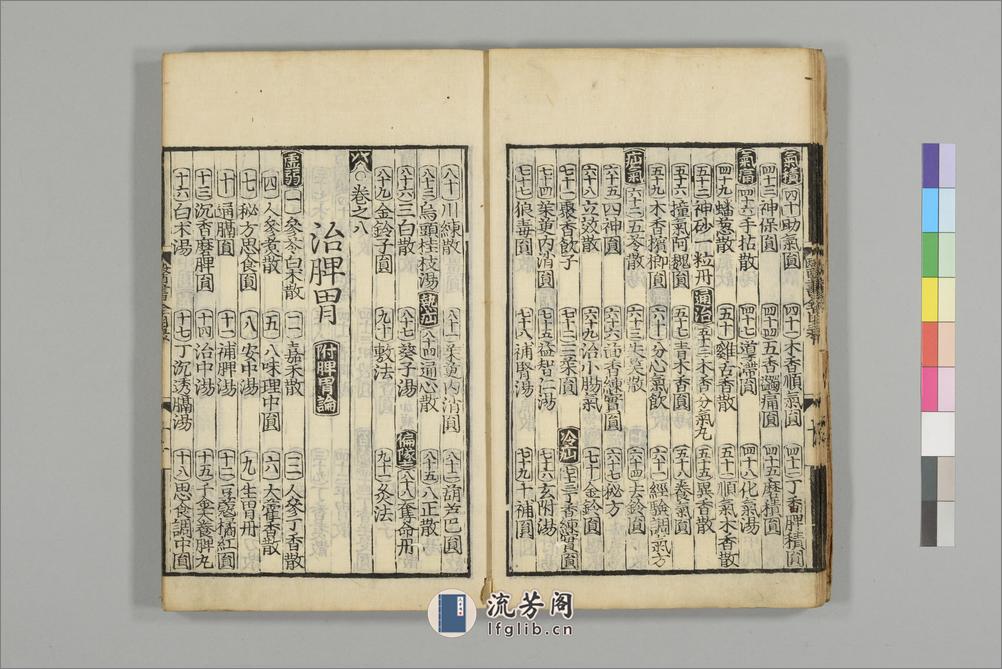 氣積 四十助氣圓 四十一木香順氣圓 四十二丁香脾積圓
四十三神保圓 四十四五香蠲痛圓 四十五麻積圓
氣痛 四十六手拈散 四十七導滯圓 四十八化氣湯
四十九蟠葱散 五十雞舌香散 五十一順氣木香散
五十二神砂一粒丹 通治 五十三木香分氣丸 五十五異香散
五十六撞氣阿魏圓 五十七青木香圓 五十八養氣圓
五十九木香檳榔圓 六十分心氣飲 六十一經驗調氣方
疝氣 六十二五苓散 六十三 六十四去鈴圓
六十五四神圓 六十六茴香練實圓 六十七秘方
六十八立效散 六十九治小腸氣 七十金鈴圓
七十一聚香飲子 七十二三茱圓 冷疝 七十三丁香練實圓
七十四茱萸內消圓 七十五益智仁湯 七十六玄附湯
七十七狼毒圓 七十八補腎湯 七十九十補圓
八十川練散 八十一茱萸內消圓 八十二葫芦巴圓
八十三烏頭桂枝湯 熱疝 八十四通心散 八十五八正散
八十六三白散 八十七葵子湯 偏墜 八十八奪命丹
八十九金鈴子圓 九十敷法 九十一灸法
八 卷之八
治脾胃 附脾胃論
虛弱 一參苓白朮散 二嘉禾散 三人參丁香散
四人參煮散 五八味理中圓 六大藿香散
七秘方思食圓 八安中湯 九生胃丹
十通膈圓 十一補脾湯 十二荳蔻橘紅圓
十三沉香磨脾圓 十四治中湯 十五千金養脾丸
十六白朮湯 十七丁沉透膈湯 十八思食調中圓
流芳阁
lfglib.cn